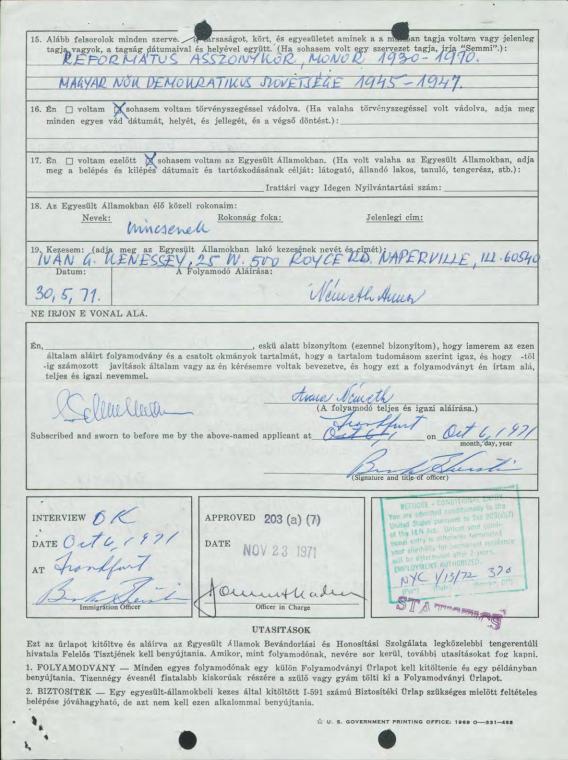 15. Alább felsorolok minden szerve társaságot, kört, és egyesületet aminek a a tagja voltam vagy jelenleg
tagja vagyok, a tagság dátumaival és helyével együtt. (Ha sohasem volt egy szervezet tagja, irja "Semmi".):
REFORMÁTUS ASSZONYKÖR, MONOR 1930-1970.
MAGYAR NŐK DEMOKRATIKUS SZÖVETSÉGE 1945-1947.
16. Én □ voltam ☒ sohasem voltam törvényszegéssel vádolva. (Ha valaha törvényszegéssel volt vádolva, adja meg
minden egyes vád dátumát, helyét, és jellegét, és a végső döntést.):
17. Én □ voltam ezelőtt ☒ sohasem voltam az Egyesült Államokban. (Ha volt valaha az Egyesült Államokban, adja
meg a belépés és kilépés dátumait és tartózkodásának célját: látogató, állandó lakos, tanuló, tengerész, stb.):
Irattári vagy Idegen Nyilvántartási szám:
18. Az Egyesült Államokban élő közeli rokonaim:
Nevek: Rokonság foka: Jelenlegi cim:
nincsenek
19. Kezesem: (adja meg az Egyesült Államokban lakó kezesének nevét és címét):
IVAN G. KENESSEY, 25 W. 500 ROYCE RD. NAPERVILLE, ILL. 60540
Datum: A Folyamodó Aláirása:
30, 5, 71. Németh Anna
NE IRJON E VONAL ALÁ.
Én, , eskü alatt bizonyitom (ezennel bizonyitom), hogy ismerem az ezen
általam aláirt folyamodvány és a csatolt okmányok tartalmát, hogy a tartalom tudomásom szerint igaz, és hogy -től
-ig számozott javitások általam vagy az én kérésemre voltak bevezetve, és hogy ezt a folyamodványt én irtam alá,
teljes és igazi nevemmel.
Anna Németh
(A folyamodó teljes és igazi aláirása.)
Frankfurt
Subscribed and sworn to before me by the above-named applicant at on Oct 6, 1971
month, day, year
(Signature and title of officer)
INTERVIEW OK
DATE Oct 6, 1971
AT Frankfurt
Immigration Officer
APPROVED 203 (a) (7)
DATE
NOV 23 1971
Officer in Charge
REFUGEE - CONDITIONAL ENTRY
You are admitted conditionally to the
United States pursuant to Sec 203(a)(7)
of the I&N Act. Unless your condi-
tional entry is otherwise terminated
your eligibility for permanent residence
will be determined after 2 years.
EMPLOYMENT AUTHORIZED.
NYC 1/13/72 370
STATISTICS
UTASITÁSOK
Ezt az ürlapot kitöltve és aláirva az Egyesült Államok Bevándorlási és Honositási Szolgálata legközelebbi tengerentúli
hivatala Felelős Tisztjének kell benyújtania. Amikor, mint folyamodónak, nevére sor kerül, további utasitásokat fog kapni.
1. FOLYAMODVÁNY — Minden egyes folyamodónak egy külön Folyamodványi Ürlapot kell kitöltenie és egy példányban
benyújtania. Tizennégy évesnél fiatalabb kiskorúak részére a szülő vagy gyám tölti ki a Folyamodványi Ürlapot.
2. BIZTOSITÉK — Egy egyesült-államokbeli kezes által kitöltött I-591 számú Biztositéki Ürlap szükséges mielőtt feltételes
belépése jóváhagyható, de azt nem kell ezen alkalommal benyújtania.
☆ U. S. GOVERNMENT PRINTING OFFICE: 1969 O—331-488